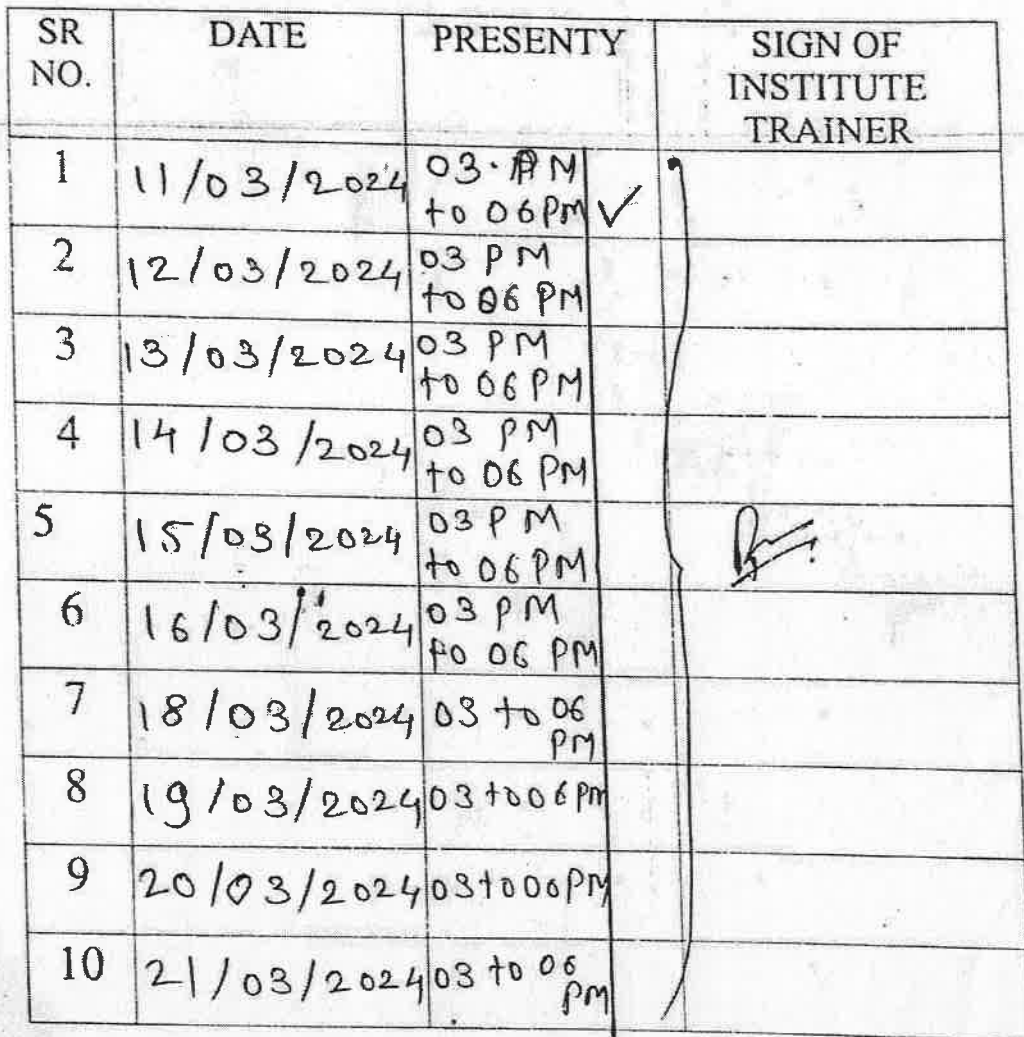 SR NO. DATE PRESENTY SIGN OF INSTITUTE TRAINER
1 11/03/2024 03·AM
to 06PM ✓
2 12/03/2024 03 PM
to 06 PM
3 13/03/2024 03 PM
to 06 PM
4 14/03/2024 03 PM
to 06 PM
5 15/03/2024 03 PM
to 06 PM
6 16/03/2024 03 PM
to 06 PM
7 18/03/2024 03 to 06
PM
8 19/03/2024 03 to 06 PM
9 20/03/2024 03 to 00 PM
10 21/03/2024 03 to 06
PM